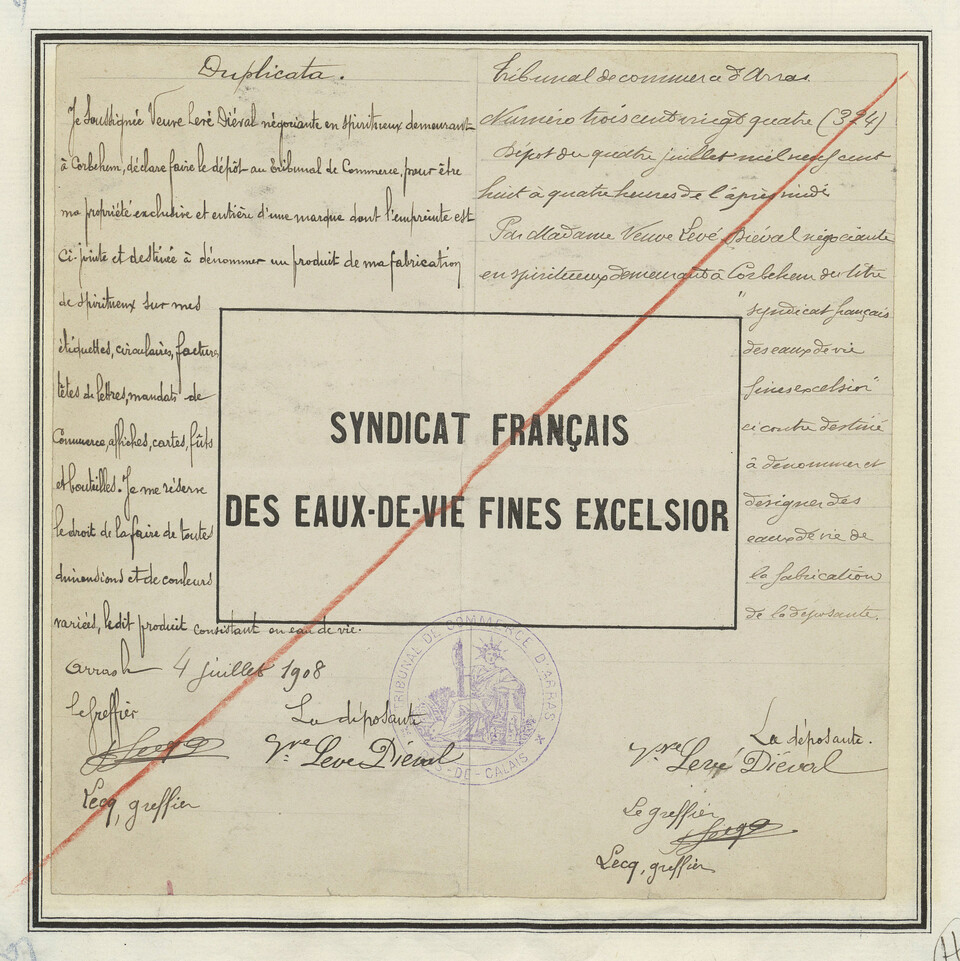 Duplicata.
Je Soussignée Veuve Levé Diéval négociante en spiritueux demeurant
à Corbehem, déclare faire le dépôt au Tribunal de Commerce, pour être
ma propriété exclusive et entière d'une marque dont l'empreinte est
Ci-jointe et destinée à dénommer un produit de ma fabrication
de spiritueux sur mes
étiquettes, circulaires, factures,
têtes de lettres, mandats de
Commerce, affiches, cartes, fûts
et bouteilles. Je me réserve
le droit de la faire de toutes
dimensions et de couleurs
variées, ledit produit consistant en eau de vie.
Arras le 4 juillet 1908
Le Greffier
Lecq, greffier
La déposante
Vve Levé Diéval
SYNDICAT FRANÇAIS
DES EAUX-DE-VIE FINES EXCELSIOR
TRIBUNAL DE COMMERCE D'ARRAS
PAS-DE-CALAIS
Tribunal de commerce d'Arras.
Numéro trois cent vingt quatre (324)
Dépôt du quatre juillet mil neuf cent
huit à quatre heures de l'après midi
Par Madame Veuve Levé Diéval négociante
en spiritueux demeurant à Corbehem du titre
"syndicat français
des eaux de vie
fines excelsior"
ci contre destiné
à dénommer et
désigner des
eaux de vie de
la fabrication
de la déposante.
La déposante.
Vve Levé Diéval
Le greffier
Lecq, greffier